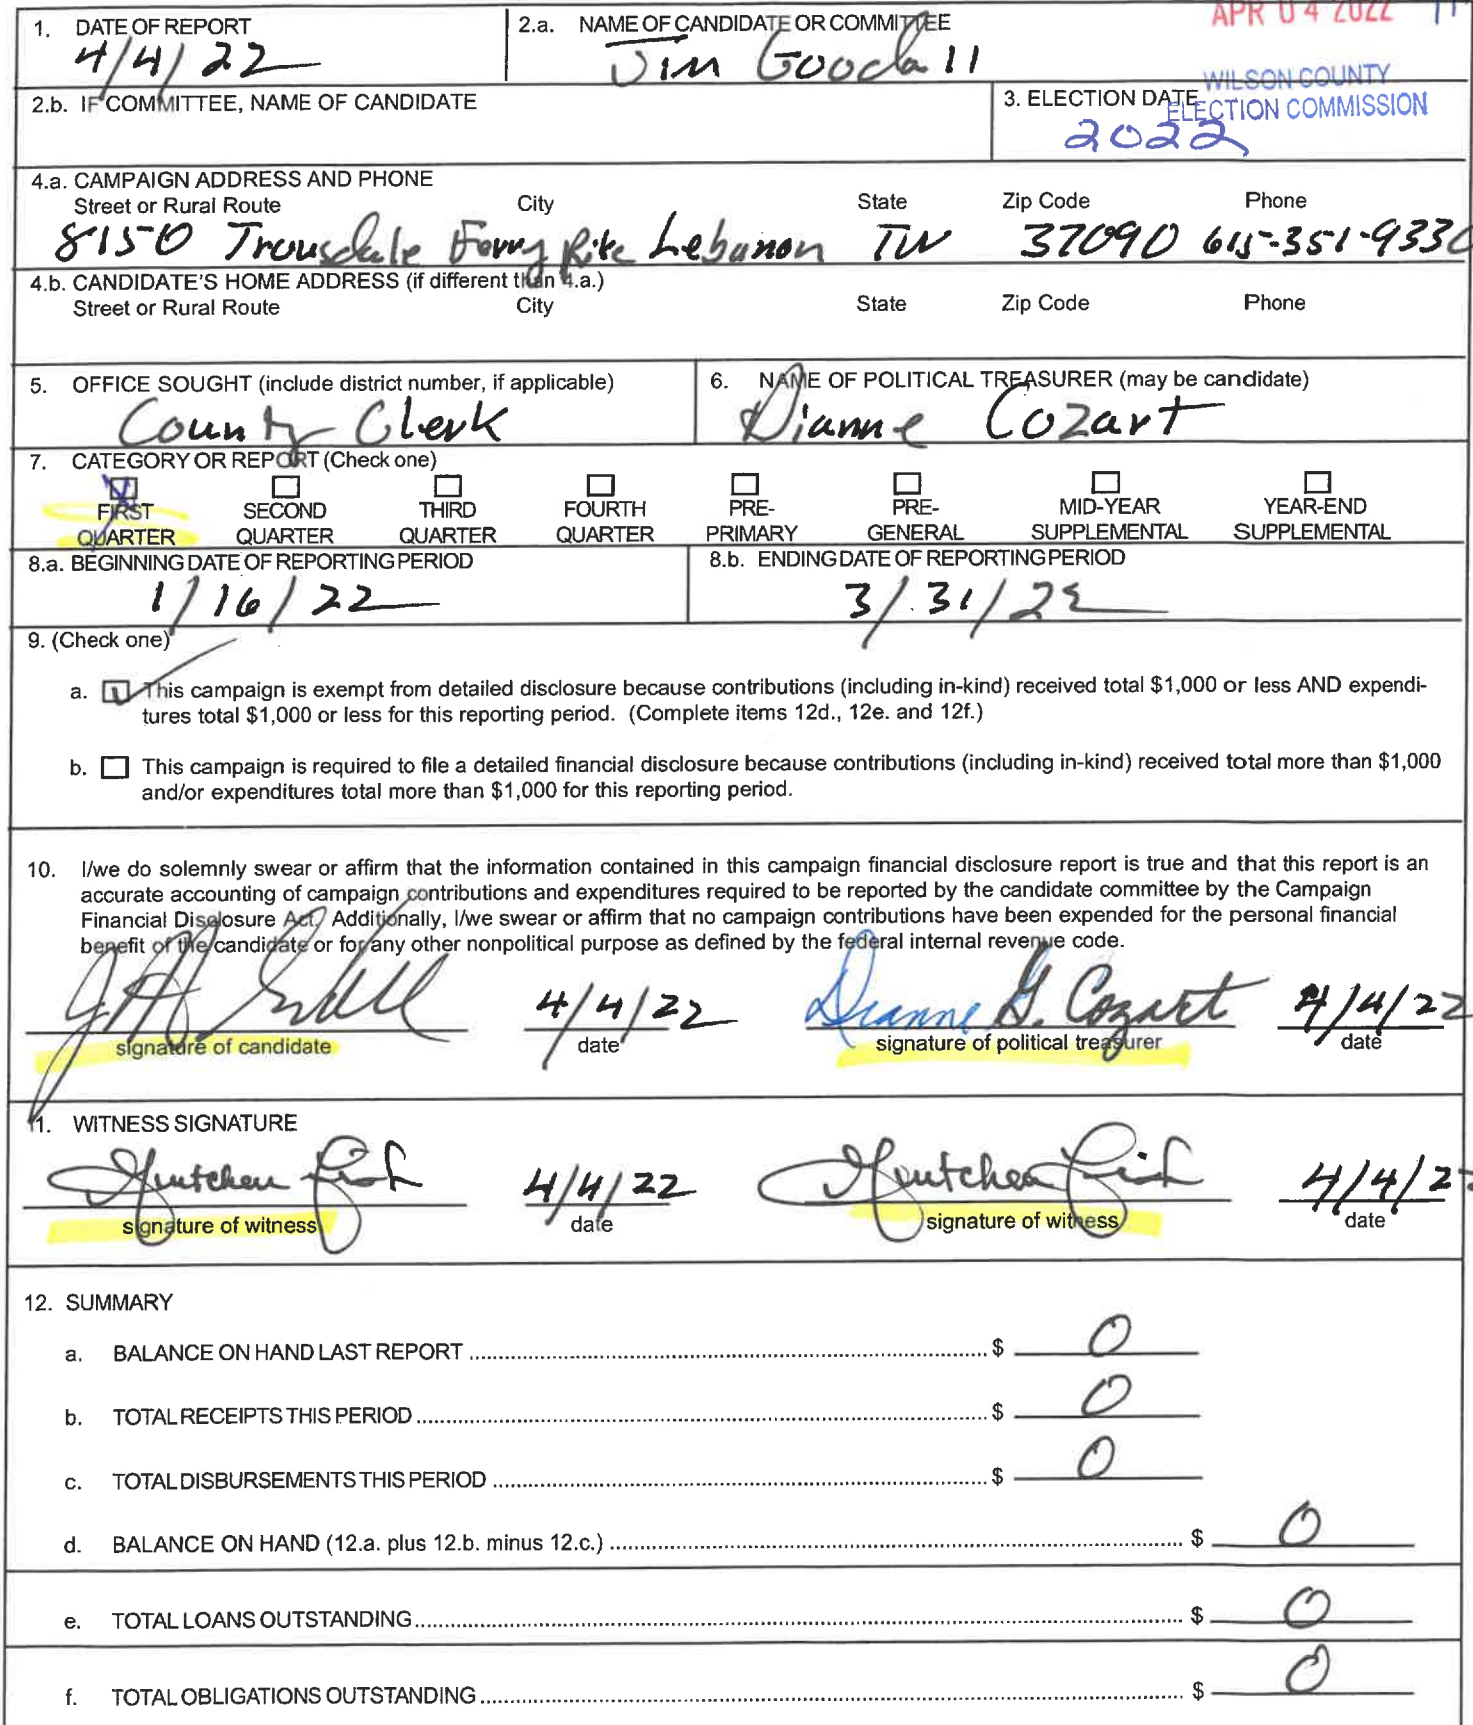 APR 04 2022
1. DATE OF REPORT
4/4/22
2.a. NAME OF CANDIDATE OR COMMITTEE
Jim Goodall
WILSON COUNTY
ELECTION COMMISSION
2.b. IF COMMITTEE, NAME OF CANDIDATE
3. ELECTION DATE
2022
4.a. CAMPAIGN ADDRESS AND PHONE
Street or Rural Route City State Zip Code Phone
8150 Trousdale Ferry Pike Lebanon TN 37090 615-351-9330
4.b. CANDIDATE'S HOME ADDRESS (if different than 4.a.)
Street or Rural Route City State Zip Code Phone
5. OFFICE SOUGHT (include district number, if applicable)
County Clerk
6. NAME OF POLITICAL TREASURER (may be candidate)
Dianne Cozart
7. CATEGORY OR REPORT (Check one)
FIRST QUARTER
SECOND QUARTER
THIRD QUARTER
FOURTH QUARTER
PRE-PRIMARY
PRE-GENERAL
MID-YEAR SUPPLEMENTAL
YEAR-END SUPPLEMENTAL
8.a. BEGINNING DATE OF REPORTING PERIOD
1/16/22
8.b. ENDING DATE OF REPORTING PERIOD
3/31/22
9. (Check one)
a. This campaign is exempt from detailed disclosure because contributions (including in-kind) received total $1,000 or less AND expendi-
tures total $1,000 or less for this reporting period. (Complete items 12d., 12e. and 12f.)
b. This campaign is required to file a detailed financial disclosure because contributions (including in-kind) received total more than $1,000
and/or expenditures total more than $1,000 for this reporting period.
10. I/we do solemnly swear or affirm that the information contained in this campaign financial disclosure report is true and that this report is an
accurate accounting of campaign contributions and expenditures required to be reported by the candidate committee by the Campaign
Financial Disclosure Act. Additionally, I/we swear or affirm that no campaign contributions have been expended for the personal financial
benefit of the candidate or for any other nonpolitical purpose as defined by the federal internal revenue code.
4/4/22 Dianne G. Cozart 4/4/22
signature of candidate date signature of political treasurer date
11. WITNESS SIGNATURE
4/4/22 4/4/2
signature of witness date signature of witness date
12. SUMMARY
a. BALANCE ON HAND LAST REPORT $ 0
b. TOTAL RECEIPTS THIS PERIOD $ 0
c. TOTAL DISBURSEMENTS THIS PERIOD $ 0
d. BALANCE ON HAND (12.a. plus 12.b. minus 12.c.) $ 0
e. TOTAL LOANS OUTSTANDING $ 0
f. TOTAL OBLIGATIONS OUTSTANDING $ 0